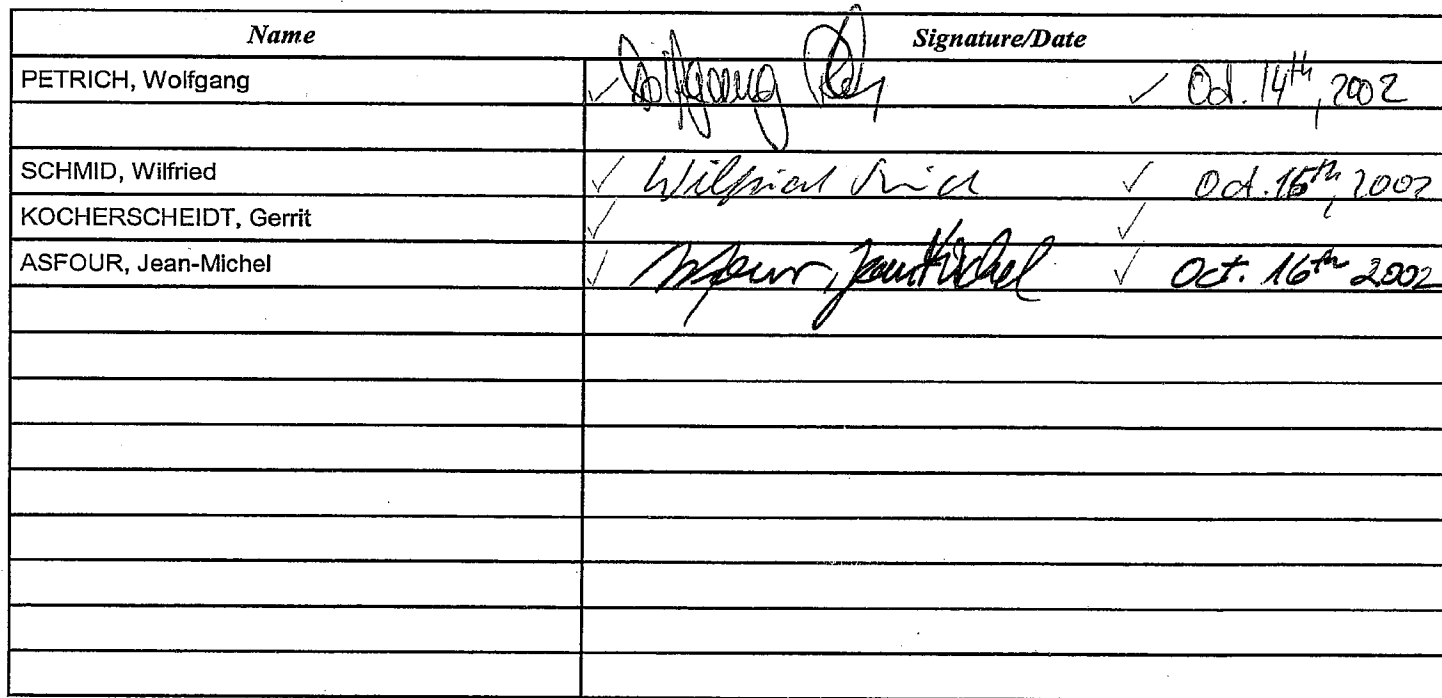 Name Signature/Date
PETRICH, Wolfgang ✓ Wolfgang ✓ Oct. 14th, 2002
SCHMID, Wilfried ✓ Wilfried ✓ Oct. 15th, 2002
KOCHERSCHEIDT, Gerrit ✓ ✓
ASFOUR, Jean-Michel ✓ Asfour, Jean Michel ✓ Oct. 16th 2002